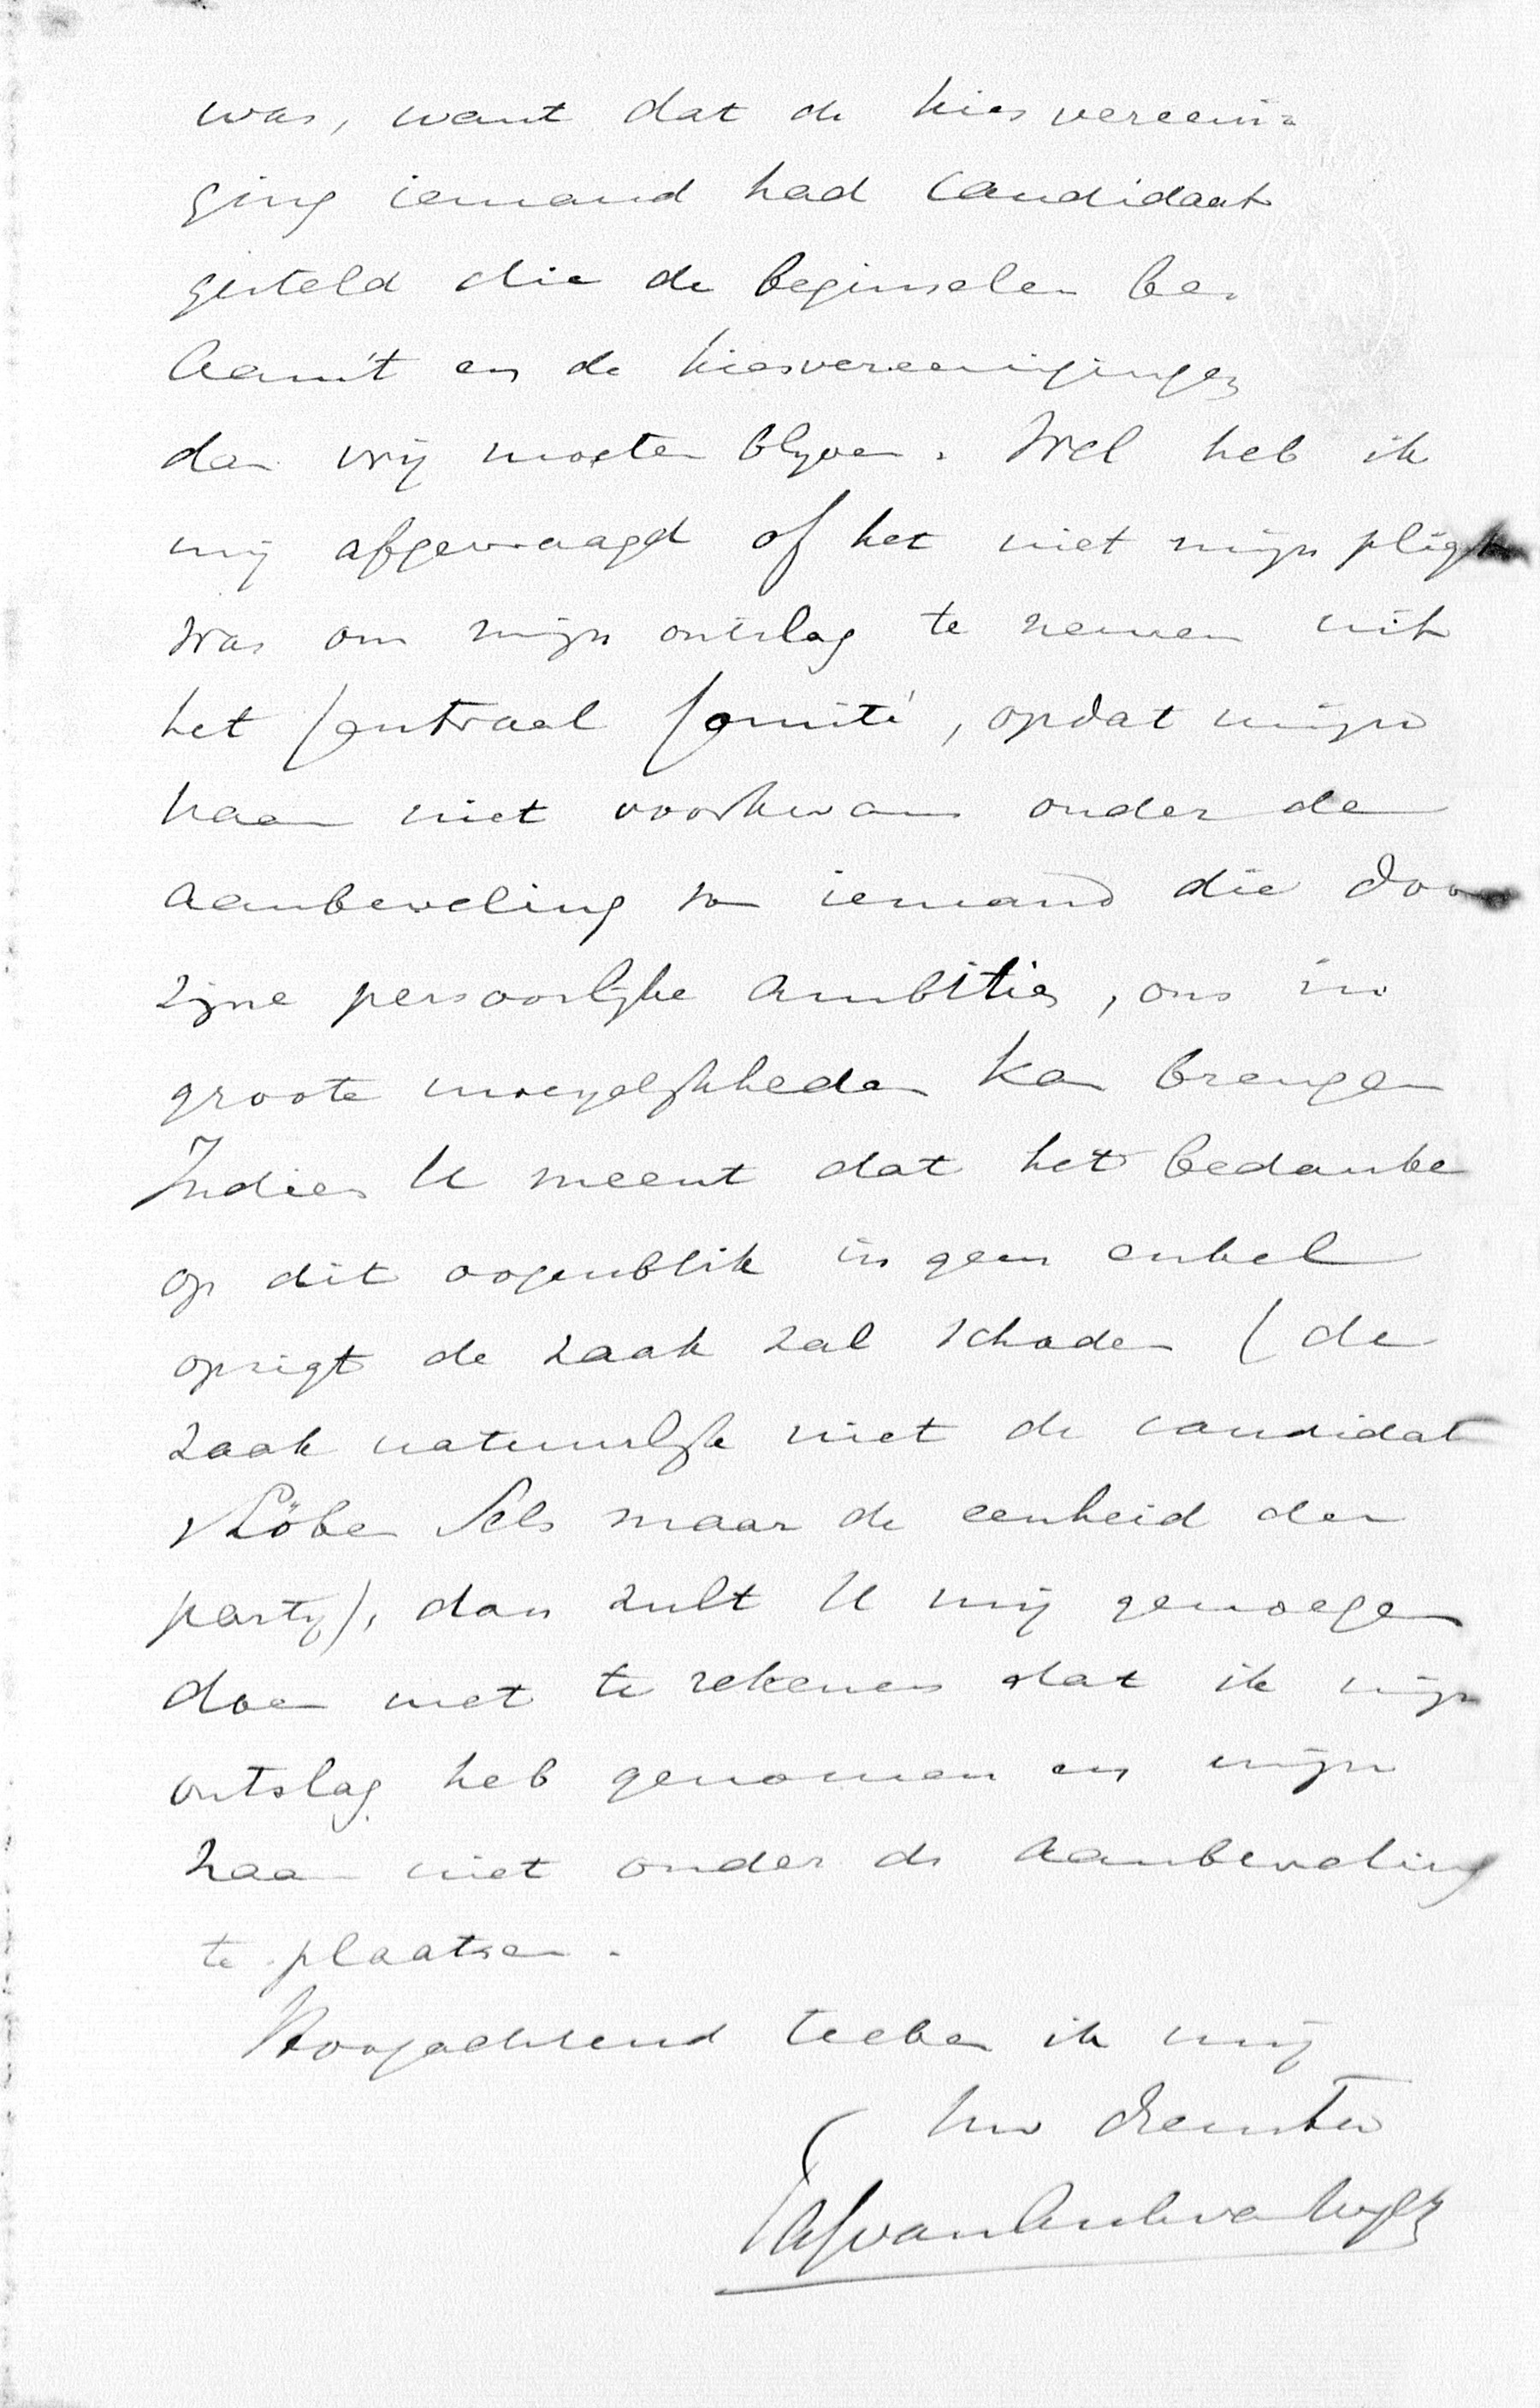 was, want dat de kiesvereeni=
ging iemand had candidaat
gesteld die de beginselen be-
aamt en de kiesvereenigingen
den vrij moeten blijven. Wel heb ik
mij afgevraagd of het niet mijn pligt
was om mijn ontslag te nemen uit
het Centraal Comité, opdat mijn
naam niet voorkwam onder de
aanbeveling van iemand die door
zijne persoonlijke ambitie, ons in
groote moeyelijkheden kan brengen
Indien U meent dat het bedanken
op dit oogenblik in geen enkel
opzigt de zaak zal schaden (de
zaak natuurlijk niet de candidat
v Löben Sels maar de eenheid der
partij), dan zult U mij genoegen
doen met te rekenen dat ik mijn
ontslag heb genomen en mijn
naam niet onder de aanbeveling
te plaatsen.
Hoogachtend teeken ik mij
Uw Dienstw